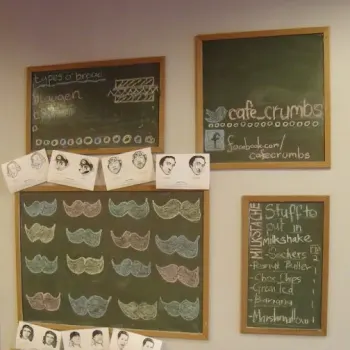 types o' bread
cafe_crumbs
f facebook.com/
cafecrumbs
MILKSTACHE
Stuff to
put in
milkshake
Snickers
Peanut Butter
Choc Chips
Banana
Marshmallow